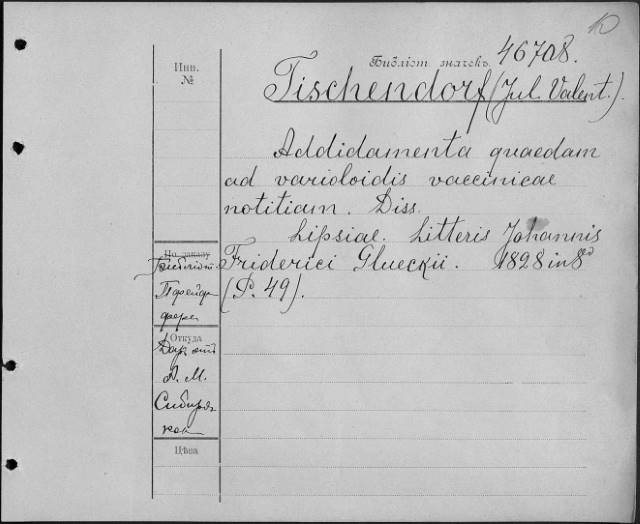 10
Библіот. значекъ. 46708.
Инв.
№
Tischendorf (Jul. Valent.).
Addidamenta quaedam
ad varioloidis vaccinicae
notitiam. Diss.
Lipsiae. Litteris Johannis
Friderici Glueckii. 1828 in 8º
(P. 49).
По заказу
Библіот.
Пфейф
фера
Откуда
Даръ отъ
А. М.
Сибиряк
кова
Цѣна